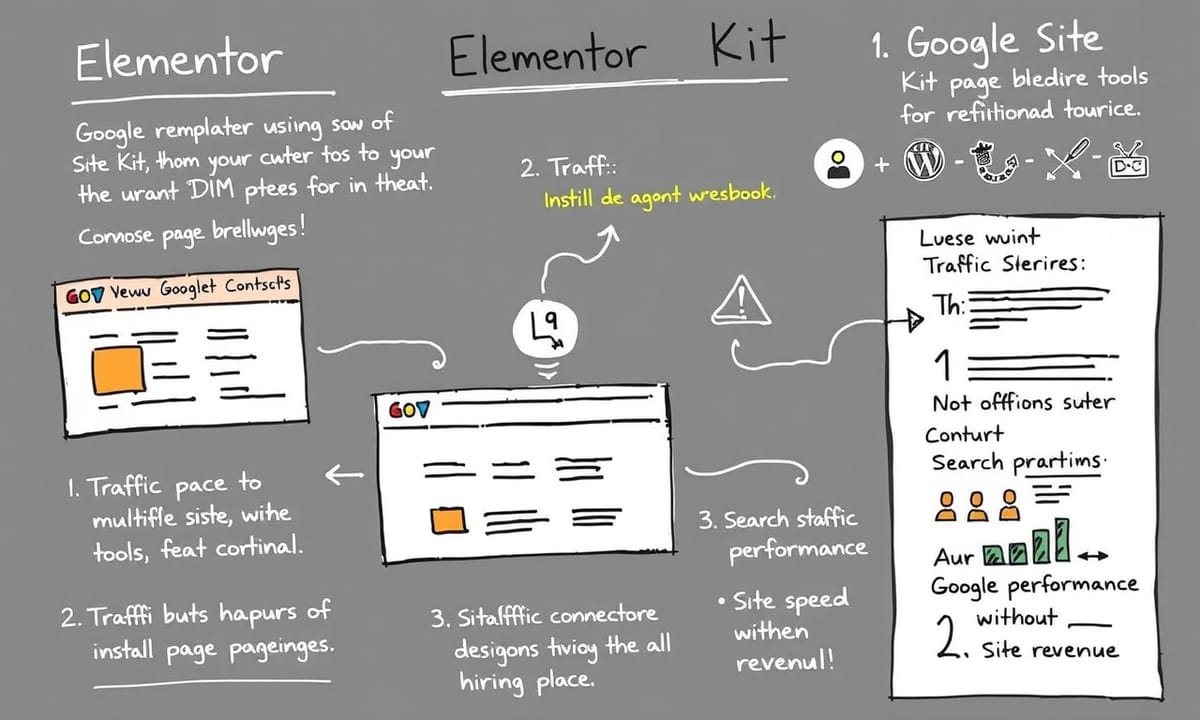 Elementor
Google remplater using sow of
Site Kit, thom your cwter tos to your
the urant DIM ptees for in theat.
Cornose page brellwges!
GOV Vewu Googlet Contsct's
1. Traffic pace to
multifle siste, withe
tools, feat cortinal.
2. Trafffi buts hapurs of
install page pageinges.
Elementor Kit
2. Traff::
Instill de agont wresbook.
L9
GOV
3. Sitalfffic connectore
designs tivioy the all
hiring place.
1. Google Site
Kit page bledire tools
for refitionad tourice.
+ W - - - D-C
3. Search staffic
performance
• Site speed
withen
revenul!
Luese wuint
Traffic Sterires:
Th:
1
Not offfions suter
Conturt
Search prartims.
Aur
Google performance
without
2. Site revenue